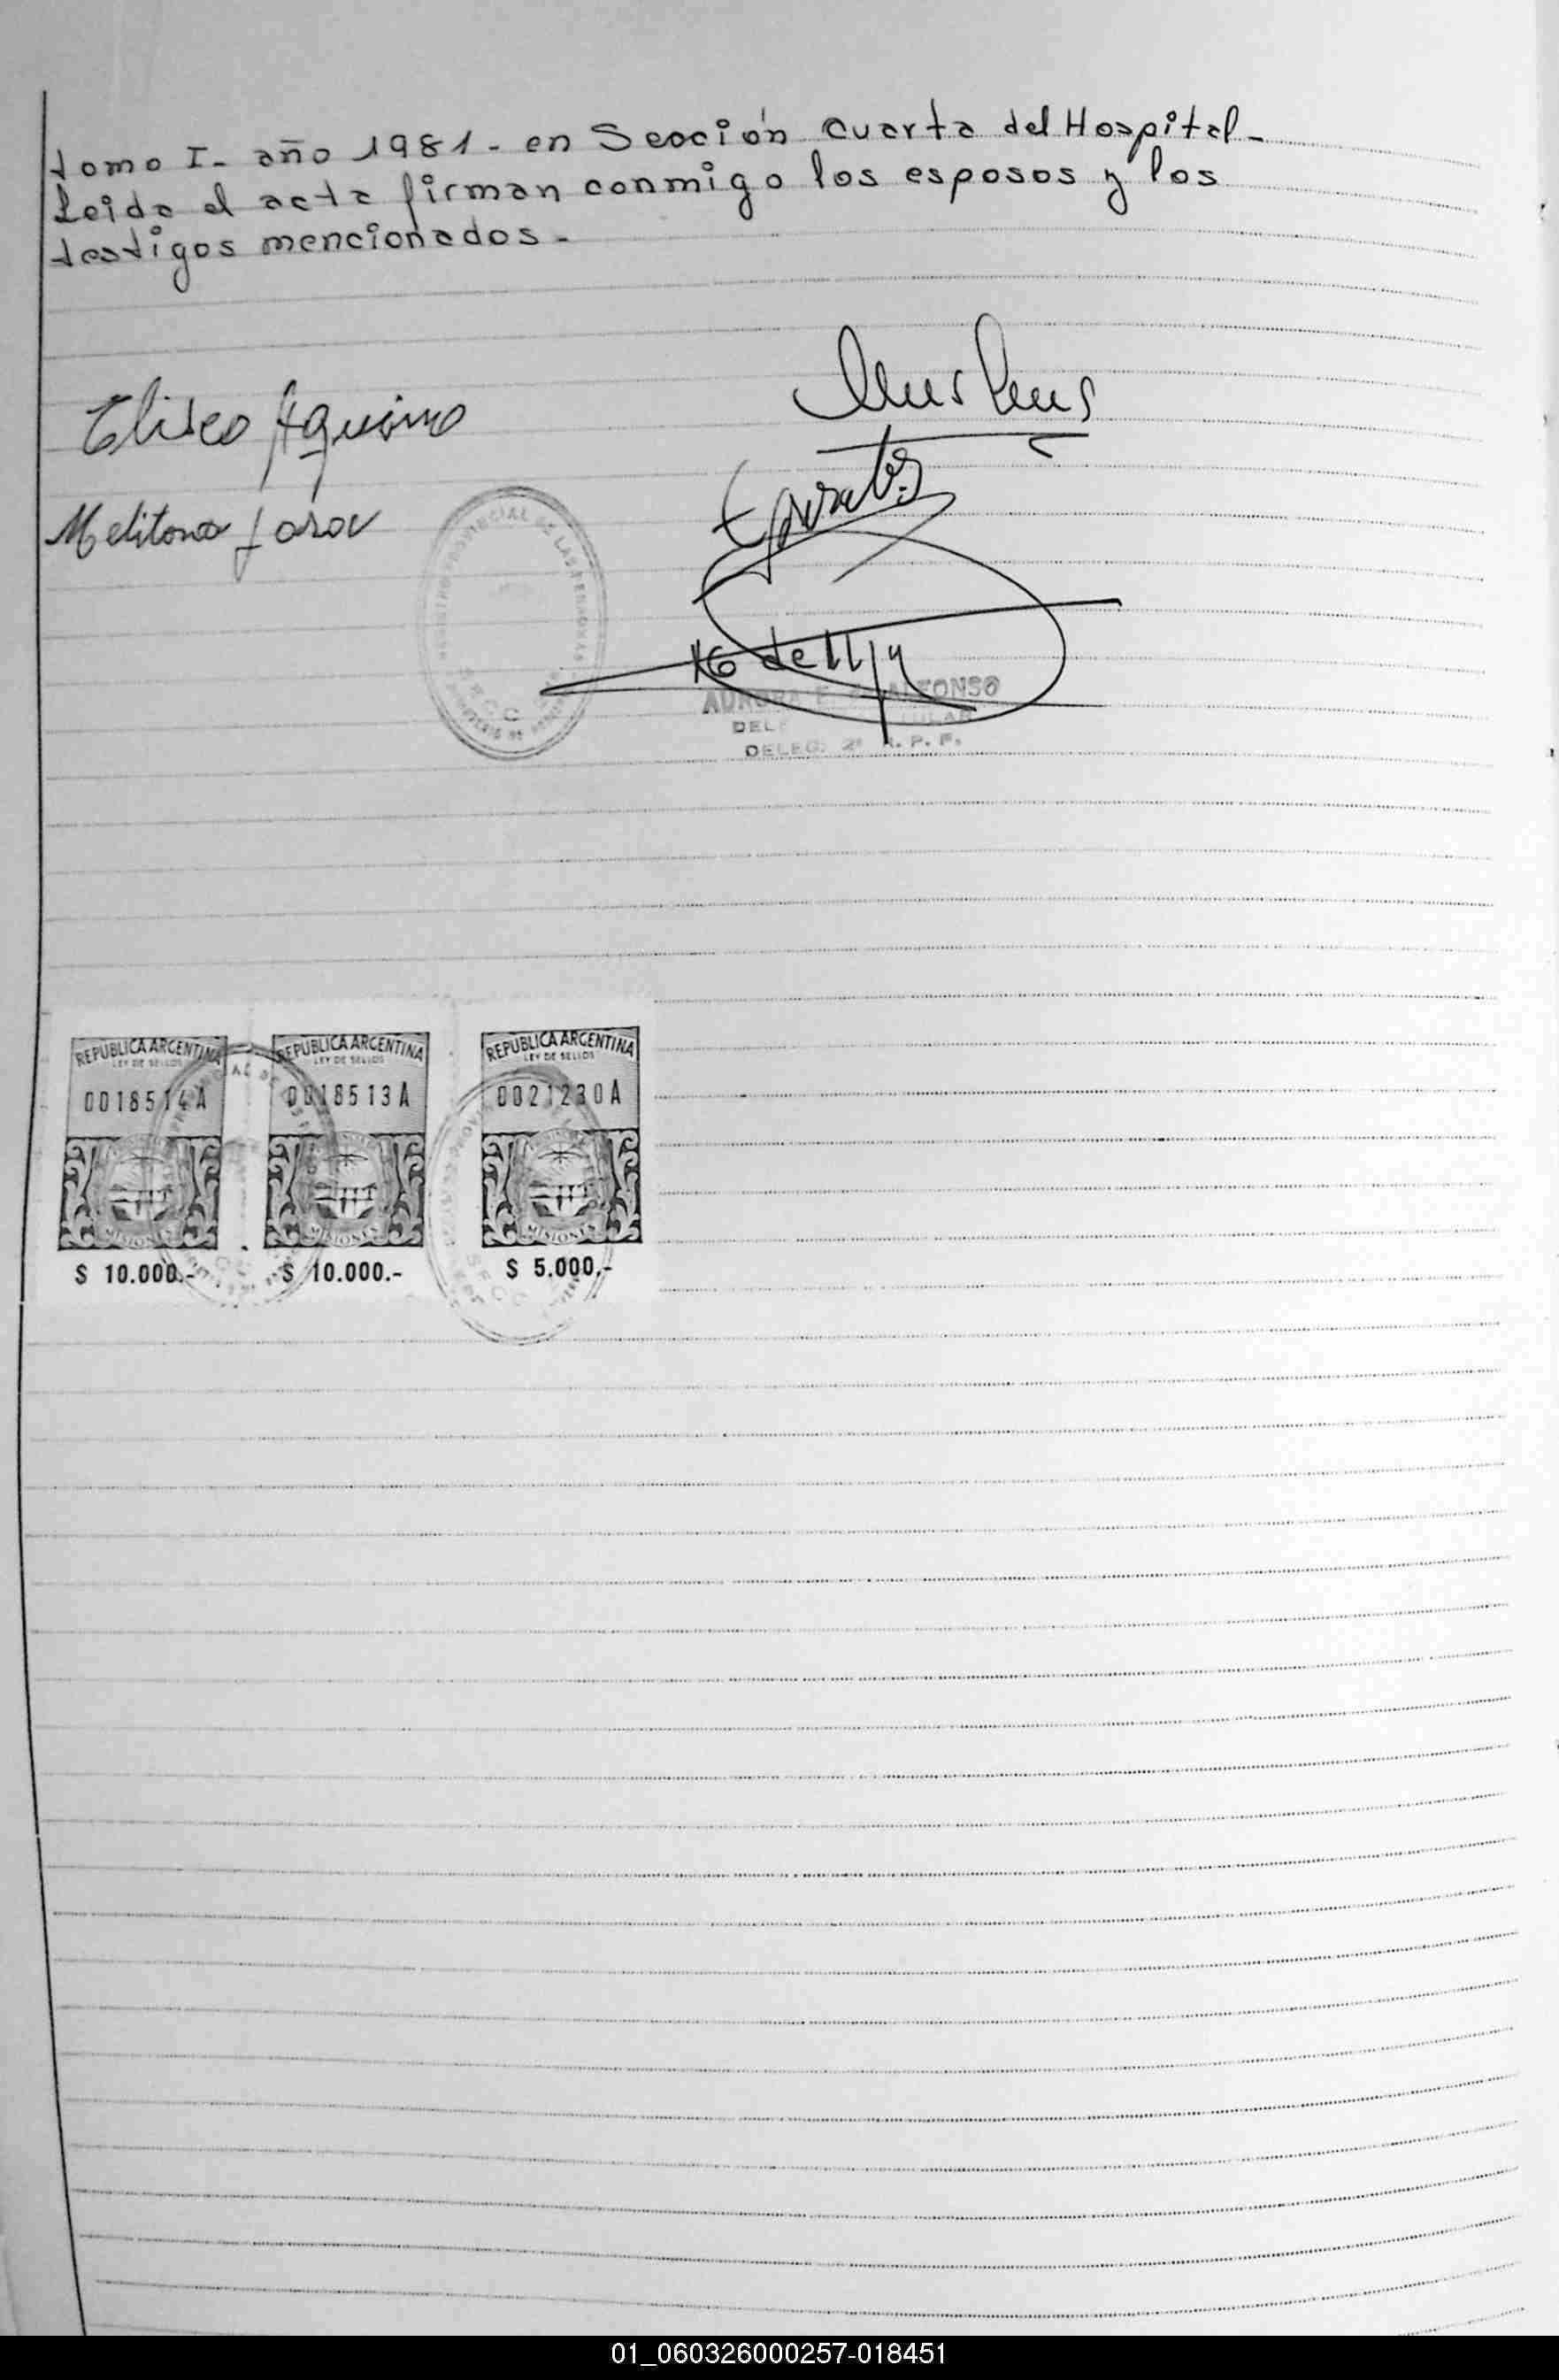 tomo I - año 1981 - en Sección cuarta del Hospital -
Leida el acta firman conmigo los esposos y los
testigos mencionados -
Eliseo Aquino
Melitona Jara
REGISTRO PROVINCIAL DE LAS PERSONAS
AURORA F. ALFONSO
DELEG. 2ª R. P. F.
REPUBLICA ARGENTINA REPUBLICA ARGENTINA REPUBLICA ARGENTINA
LEY DE SELLOS LEY DE SELLOS LEY DE SELLOS
0018514A 0018513A 0021230A
MISIONES MISIONES MISIONES
$ 10.000.- $ 10.000.- $ 5.000.-
01_060326000257-018451